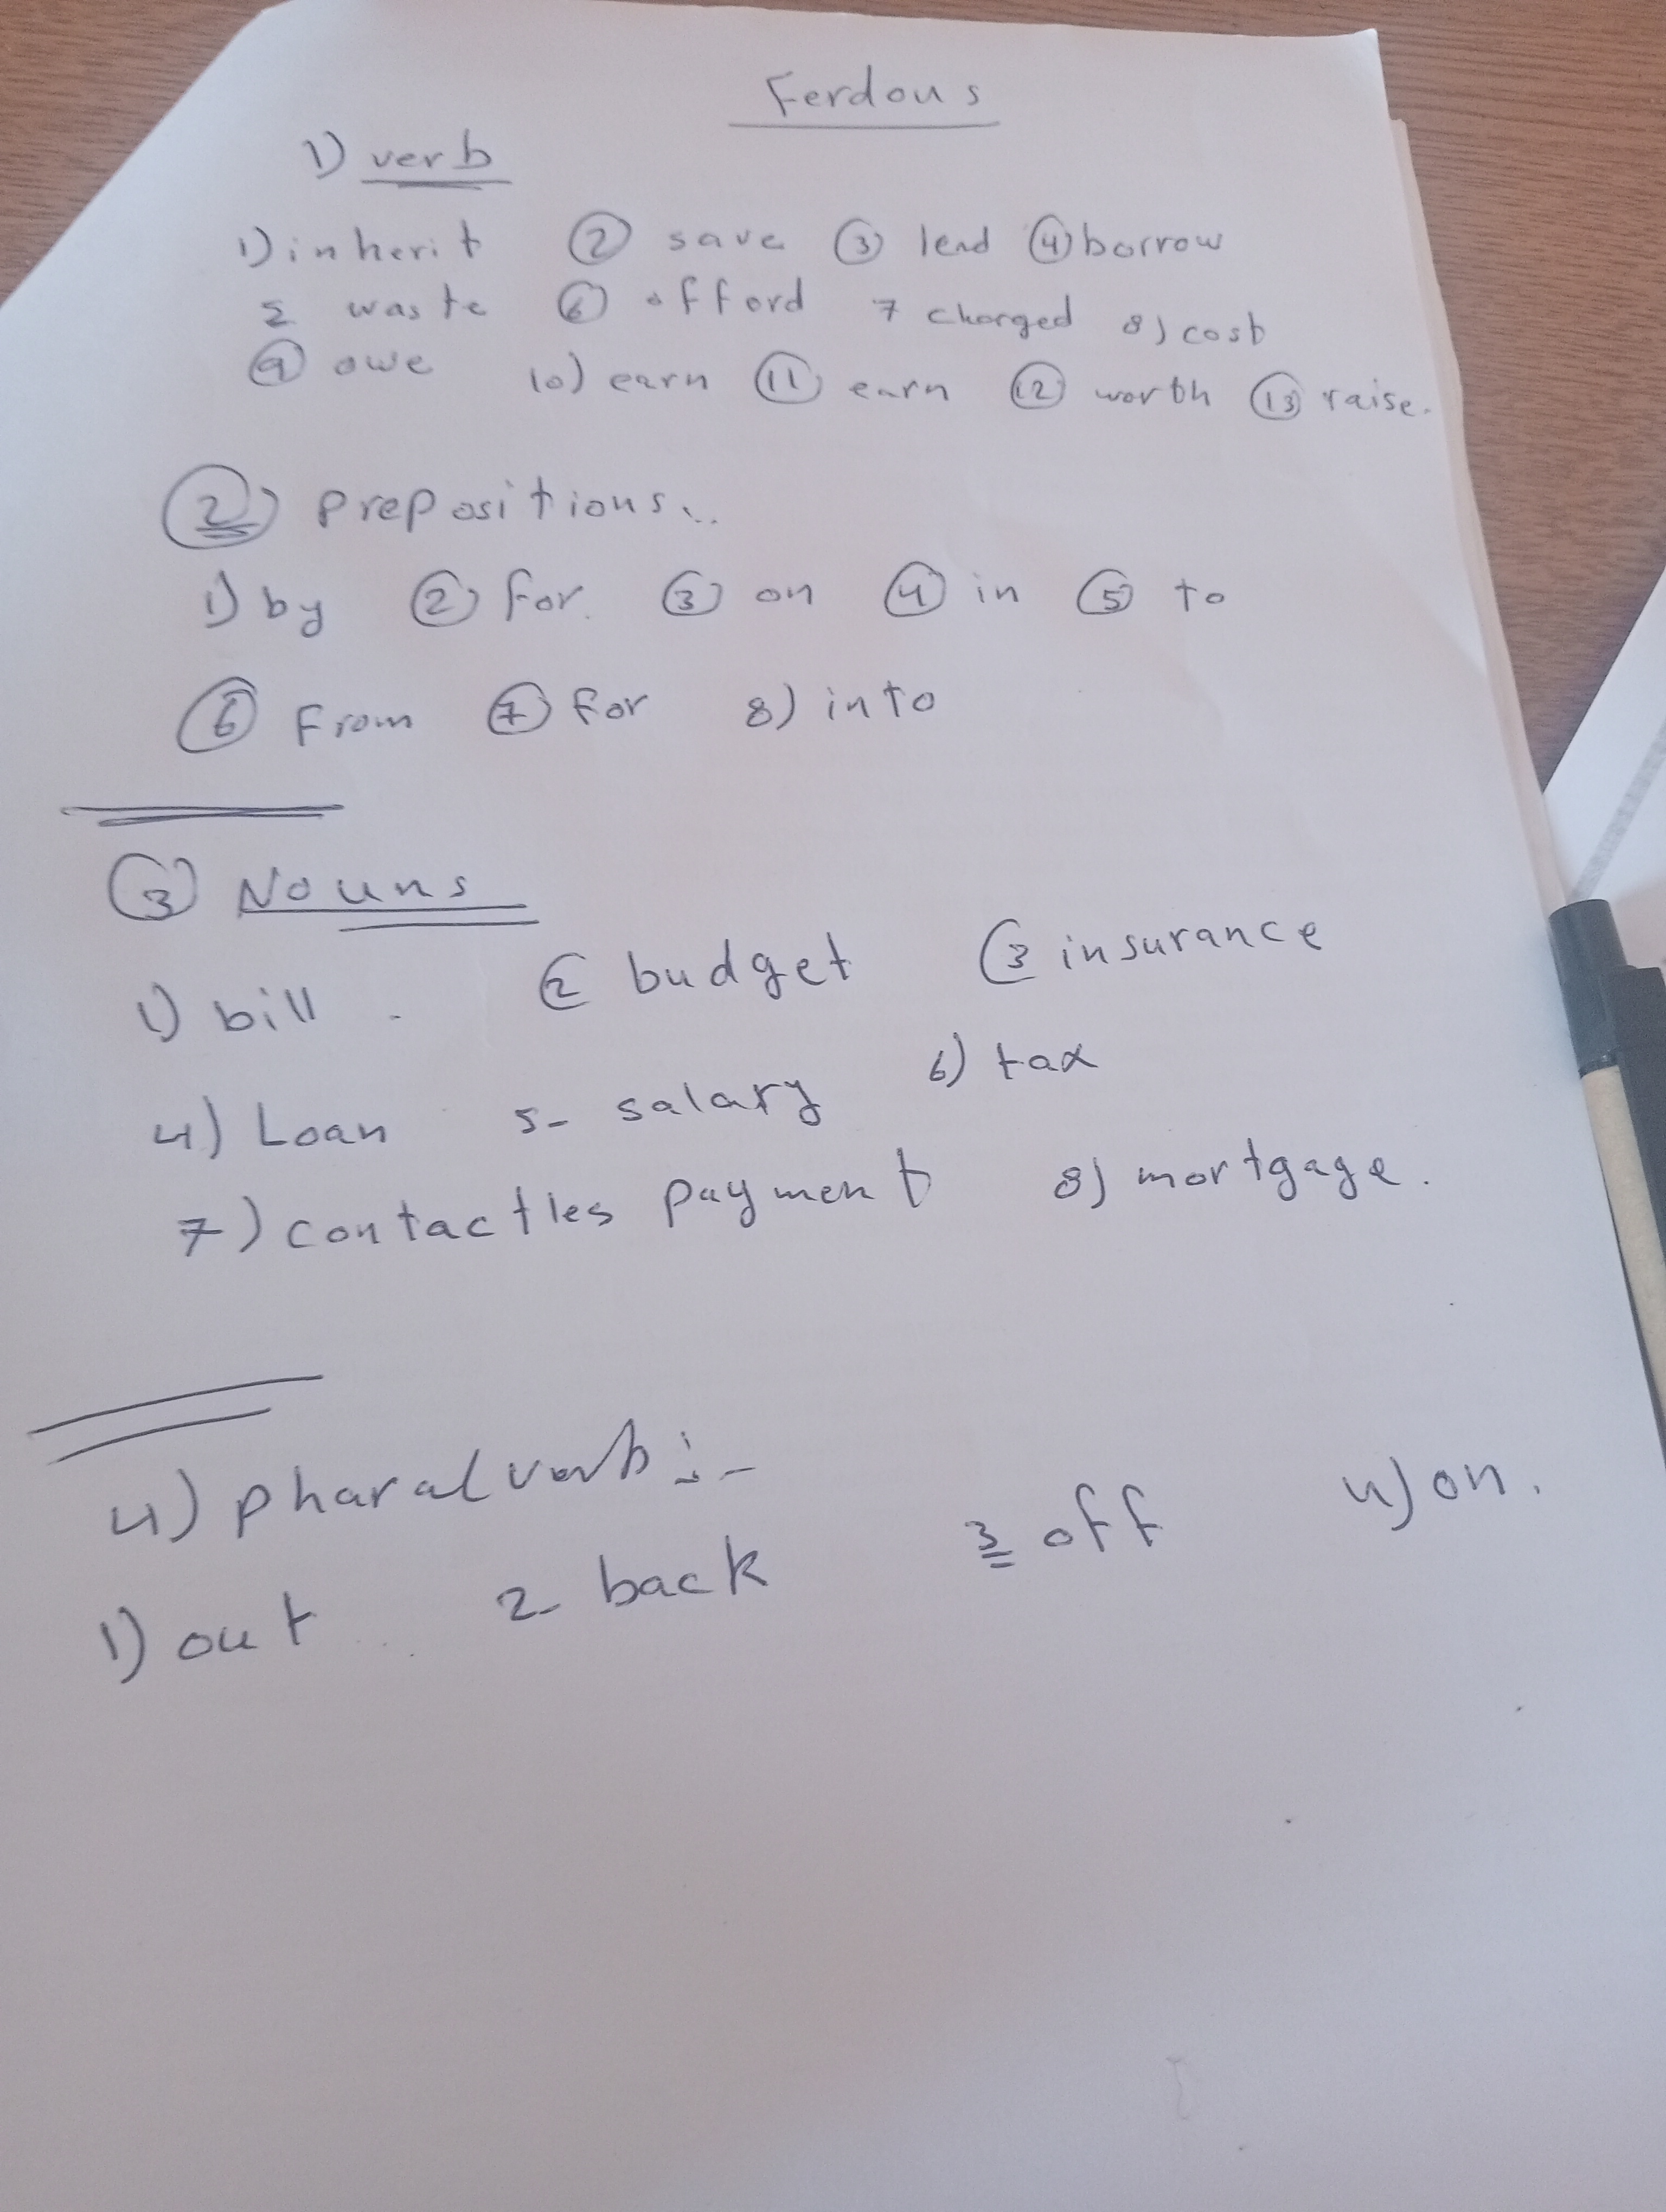 Ferdous
1) verb
1) inherit 2 save 3 lend 4 borrow
5 waste 6 afford 7 charged 8) cost
9 owe 10) earn 11 earn 12 worth 13 raise.
2) prepositions..
1) by 2 for. 3 on 4 in 5 to
6 From 7 for 8) into
3 Nouns
1) bill . 2 budget 3 insurance
4) Loan 5- salary 6) tax
7) contactles payment 8) mortgage.
4) pharal verb :-
1) out .. 2- back 3 off 4) on.